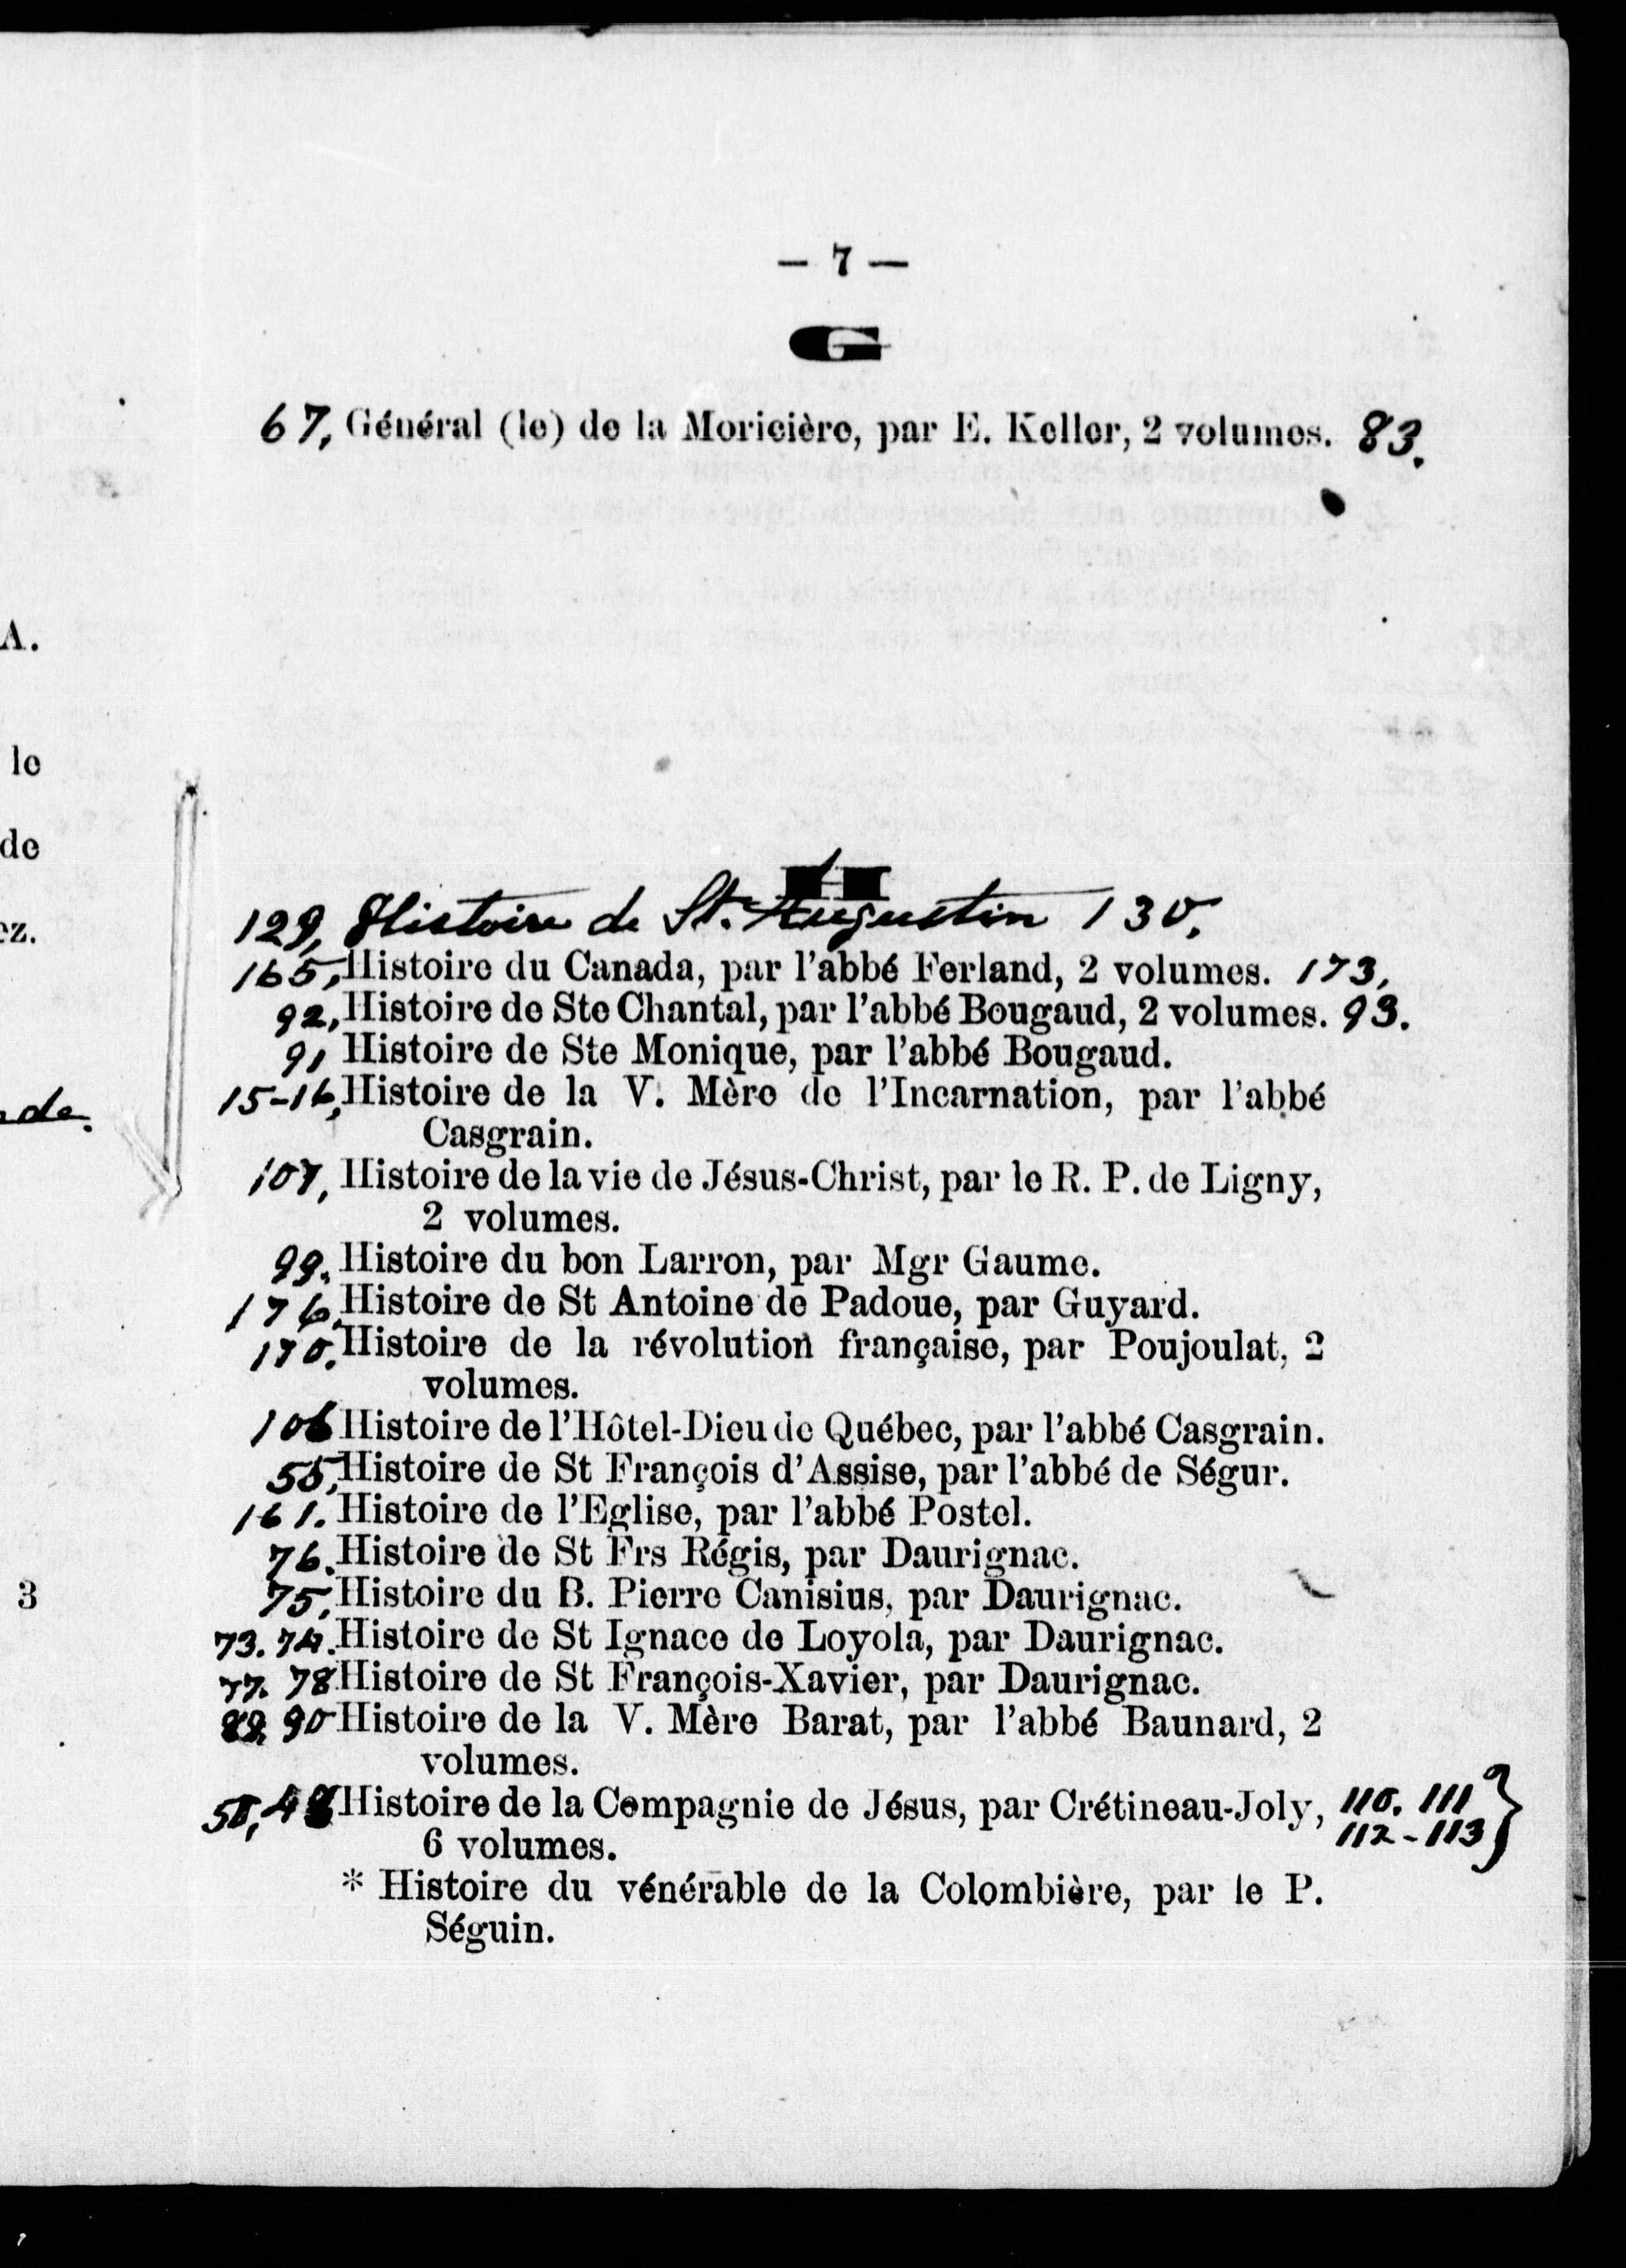 — 7 —
G
67, Général (le) de la Moricière, par E. Keller, 2 volumes. 83.
H
129, Histoire de St. Augustin 130,
165, Histoire du Canada, par l'abbé Ferland, 2 volumes. 173,
92, Histoire de Ste Chantal, par l'abbé Bougaud, 2 volumes. 93.
91 Histoire de Ste Monique, par l'abbé Bougaud.
15-16, Histoire de la V. Mère de l'Incarnation, par l'abbé
Casgrain.
107, Histoire de la vie de Jésus-Christ, par le R. P. de Ligny,
2 volumes.
99. Histoire du bon Larron, par Mgr Gaume.
176. Histoire de St Antoine de Padoue, par Guyard.
170. Histoire de la révolution française, par Poujoulat, 2
volumes.
106 Histoire de l'Hôtel-Dieu de Québec, par l'abbé Casgrain.
55, Histoire de St François d'Assise, par l'abbé de Ségur.
161. Histoire de l'Eglise, par l'abbé Postel.
76. Histoire de St Frs Régis, par Daurignac.
75, Histoire du B. Pierre Canisius, par Daurignac.
73. 74. Histoire de St Ignace de Loyola, par Daurignac.
77. 78 Histoire de St François-Xavier, par Daurignac.
89. 90 Histoire de la V. Mère Barat, par l'abbé Baunard, 2
volumes.
Histoire de la Compagnie de Jésus, par Crétineau-Joly, 110. 111
6 volumes. 112-113}
* Histoire du vénérable de la Colombière, par le P.
Séguin.
A.
le
de
ez.
de.
3